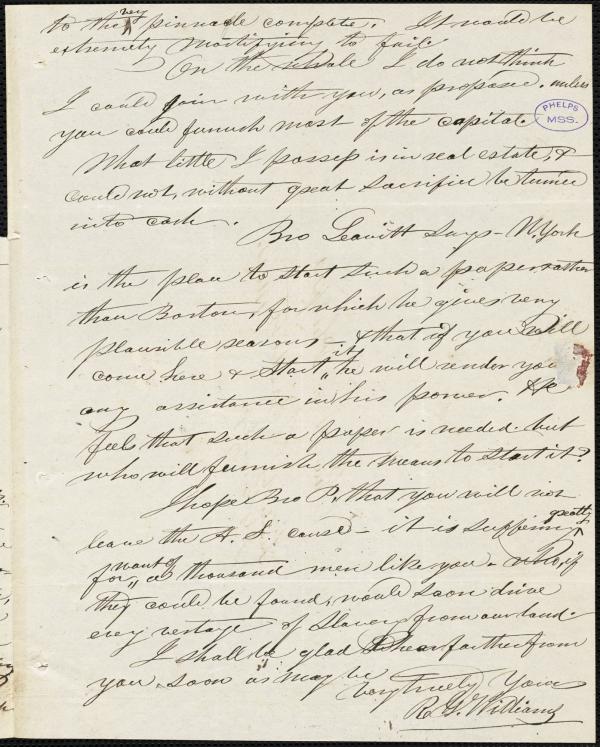 to the very pinnacle complete. It would be
extremely mortifying to fail
On the whole I do not think
I could join with you, as proposed, unless
you could furnish most of the capital.
PHELPS
MSS.
What little I possess is in real estate, &
could not, without great sacrifice be turned
into cash.
Bro Leavitt says - N York
is the place to start such a paper, rather
than Boston, for which he gives very
plausible reasons - & that if you will
come here & start it, he will render you
any assistance in his power. He
feels that such a paper is needed. but
who will furnish the means to start it?
I hope Bro P. that you will not
leave the A. S. cause - it is suffering greatly
for want of a thousand men like you - who, if
they could be found, would soon drive
every vestage of Slavery from our land.
I shall be glad to hear farther from
you soon as may be
Very truly Yours
R. G. Williams